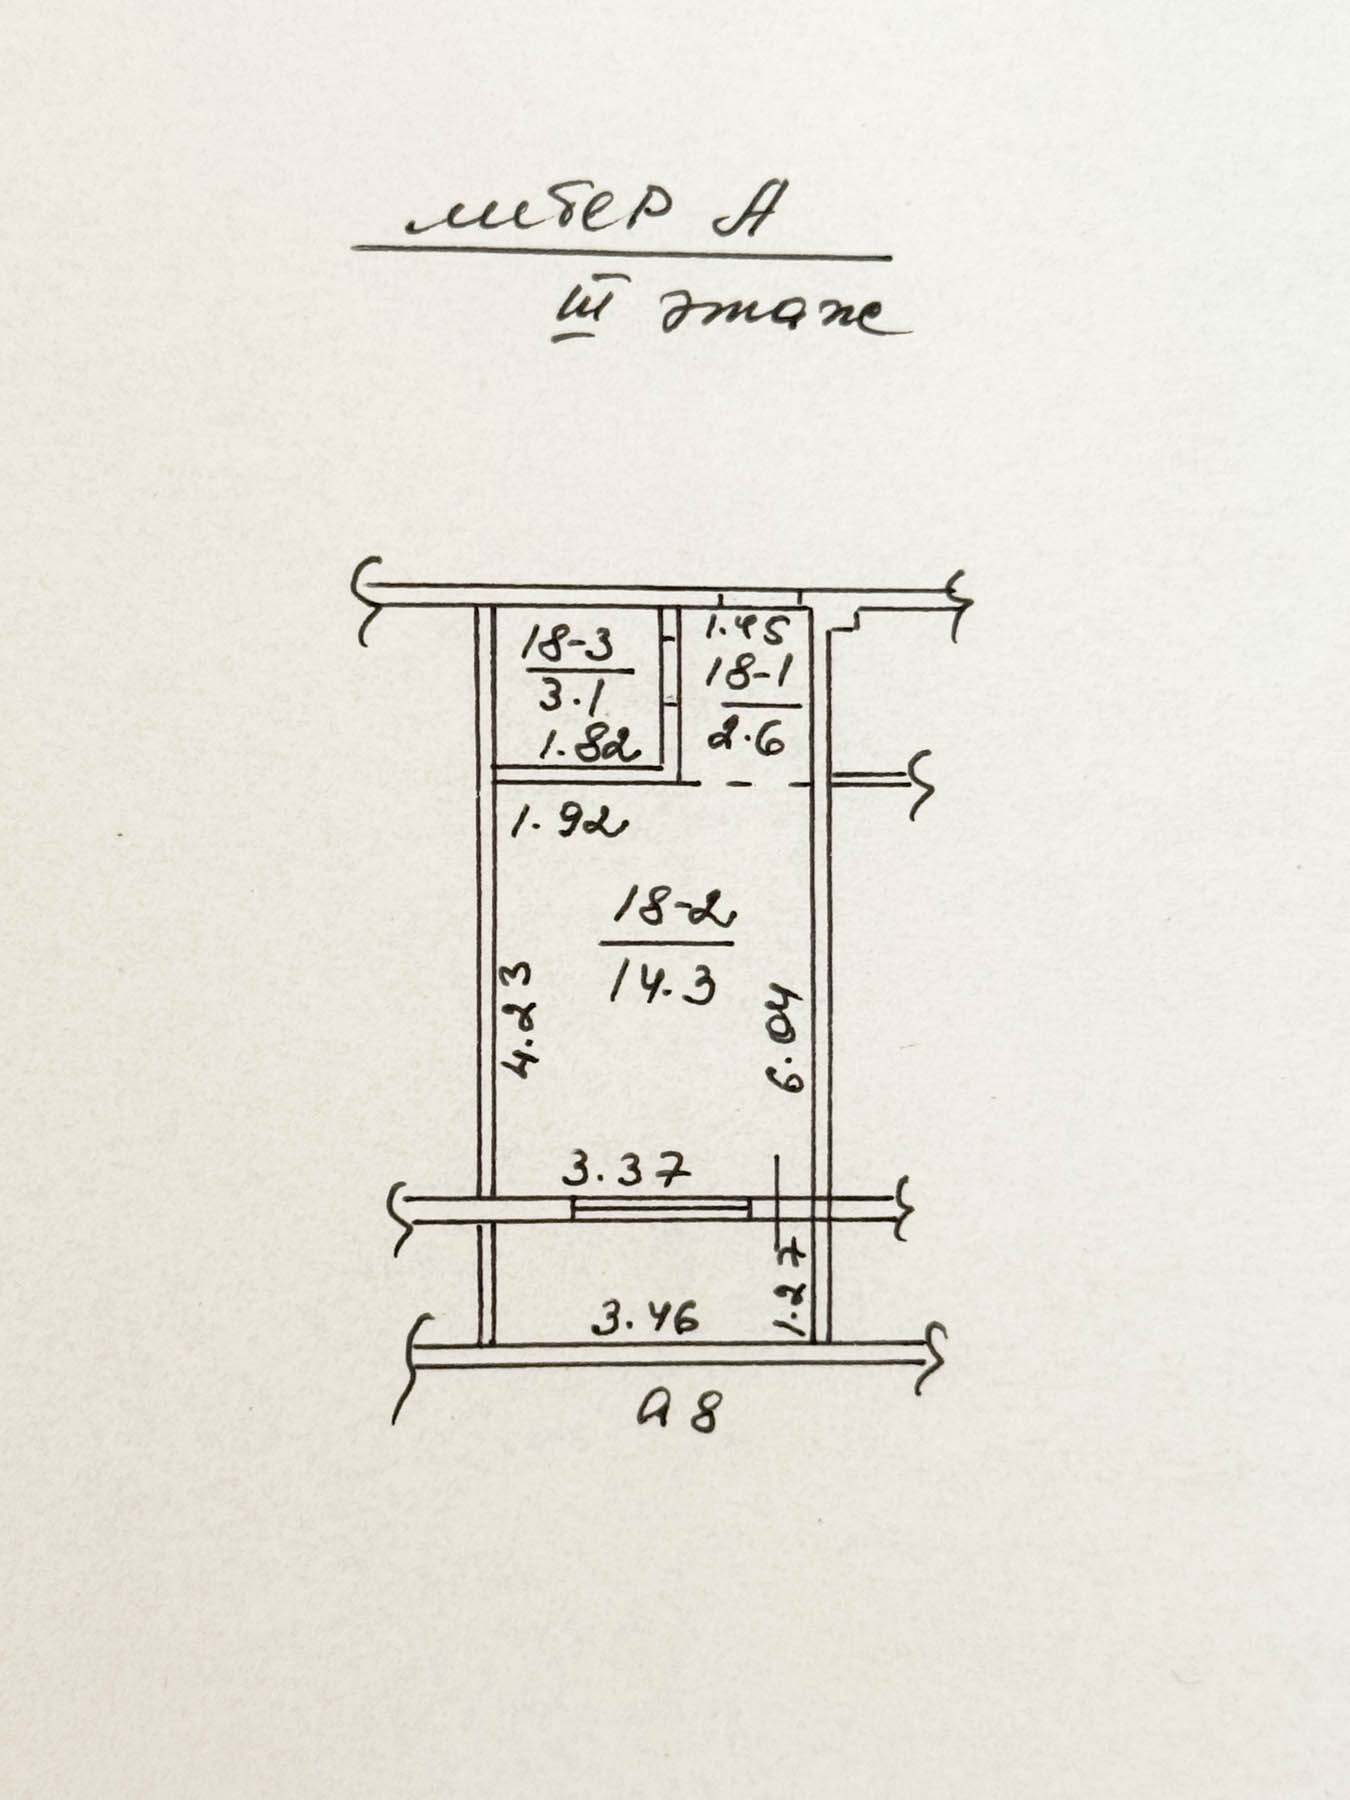 литер А
III этаж
18-3
3.1
1.82
1.45
18-1
2.6
1.92
18-2
14.3
4.23
6.04
3.37
1.27
3.46
а 8